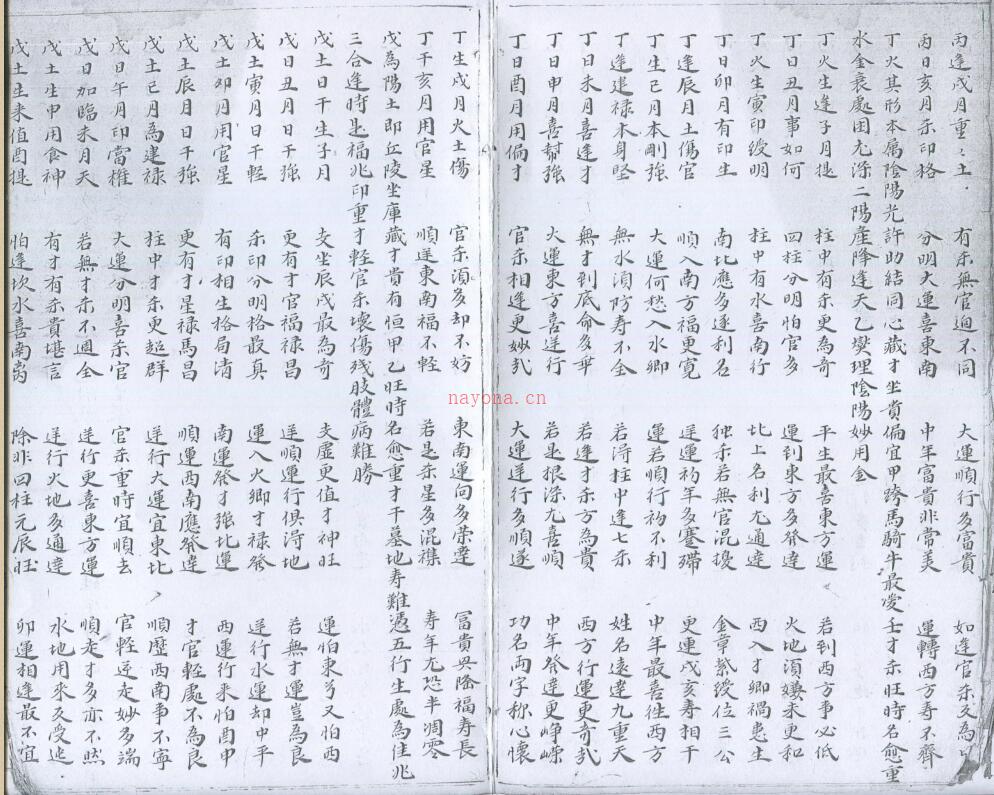 丙逢戌月重々土 有杀無官迥不同 大運順行多富貴 如逢官杀反為
丙日亥月杀印格 分明大運喜東南 中年富貴非當美 運轉西方寿不齊
丁火其形本属陰陽光許助結同心藏才坐貴偏宜甲跨馬騎牛最爱壬才杀旺時名愈重
水金衰處困尤深二陽產降逢天乙燮理陰陽妙用金
丁火生逢子月提 柱中有杀更為奇 平生最喜東方運 若到西方事必低
丁日丑月事如何 四柱分明怕官多 運到東方多發達 火地須嫌未更和
丁火生寅印绶明 柱中有水喜南行 比上名利尤通達 西入才卿禍患生
丁日卯月有印生 南比應多遂利名 独杀若無官混擾 金章紫绶位三公
丁逢辰月土傷官 順入南方福更寬 逆運初年多蹇滯 更連戌亥寿相干
丁生己月本剛强 大運何愁入水卿 運若順行初不利 中年最喜徃西方
丁逢建禄本身堅 無水須防寿不全 若淂柱中逢七杀 姓名遠達九重天
丁日未月喜逢才 無才到底命多乖 若逢才杀方為貴 西方行運更奇哉
丁日申月喜幫强 火運東方喜逆行 若是根深尤喜順 中年發達更崢嶸
丁日酉月用偏才 官杀相逢更妙哉 大運逆行多順遂 功名両字称心懷
丁生戌月火土傷 官杀須多却不妨 東南運向多荣達 富貴興隆福寿長
丁干亥月用官星 順逆東南福不輕 若是杀星多混襍 寿年尤恐半凋零
戊為陽土即丘陵坐庫藏才貴有恒甲乙旺時名愈重才干墓地寿難憑五行生處為佳兆
三合逢時是福兆印重才輕官杀壞傷残肢體病難勝
戊土日干生子月 支坐辰戌最為奇 支虚更值才神旺 運怕東兮又怕西
戊日丑月日干强 更有才官福禄昌 逆順運行俱淂地 若無才運豈為良
戊土寅月日干輕 杀印分明格最真 運入火卿才禄發 逆行水運却中平
戊土卯月用官星 有印相生格局清 南運發才强比運 西運行来怕酉申
戊土辰月日干强 更有才星禄馬昌 順運西南應發達 才官輕處不為良
戊土已月為建禄 柱中才杀更超群 逆行大運宜東比 順歷西南事不寧
戊日午月印當權 大運分明喜杀官 官杀重時宜順去 官輕逆走妙多端
戊日加臨未月天 若無才杀不週全 逆行更喜東方運 順走才多亦不然
戊土生申用食神 有才有杀貴堪言 逆行火地多通達 水地用来反受迍
戊土生来值酉提 怕逢坎水喜南离 除非四柱元辰旺 卯運相逢最不宜
nayona.cn